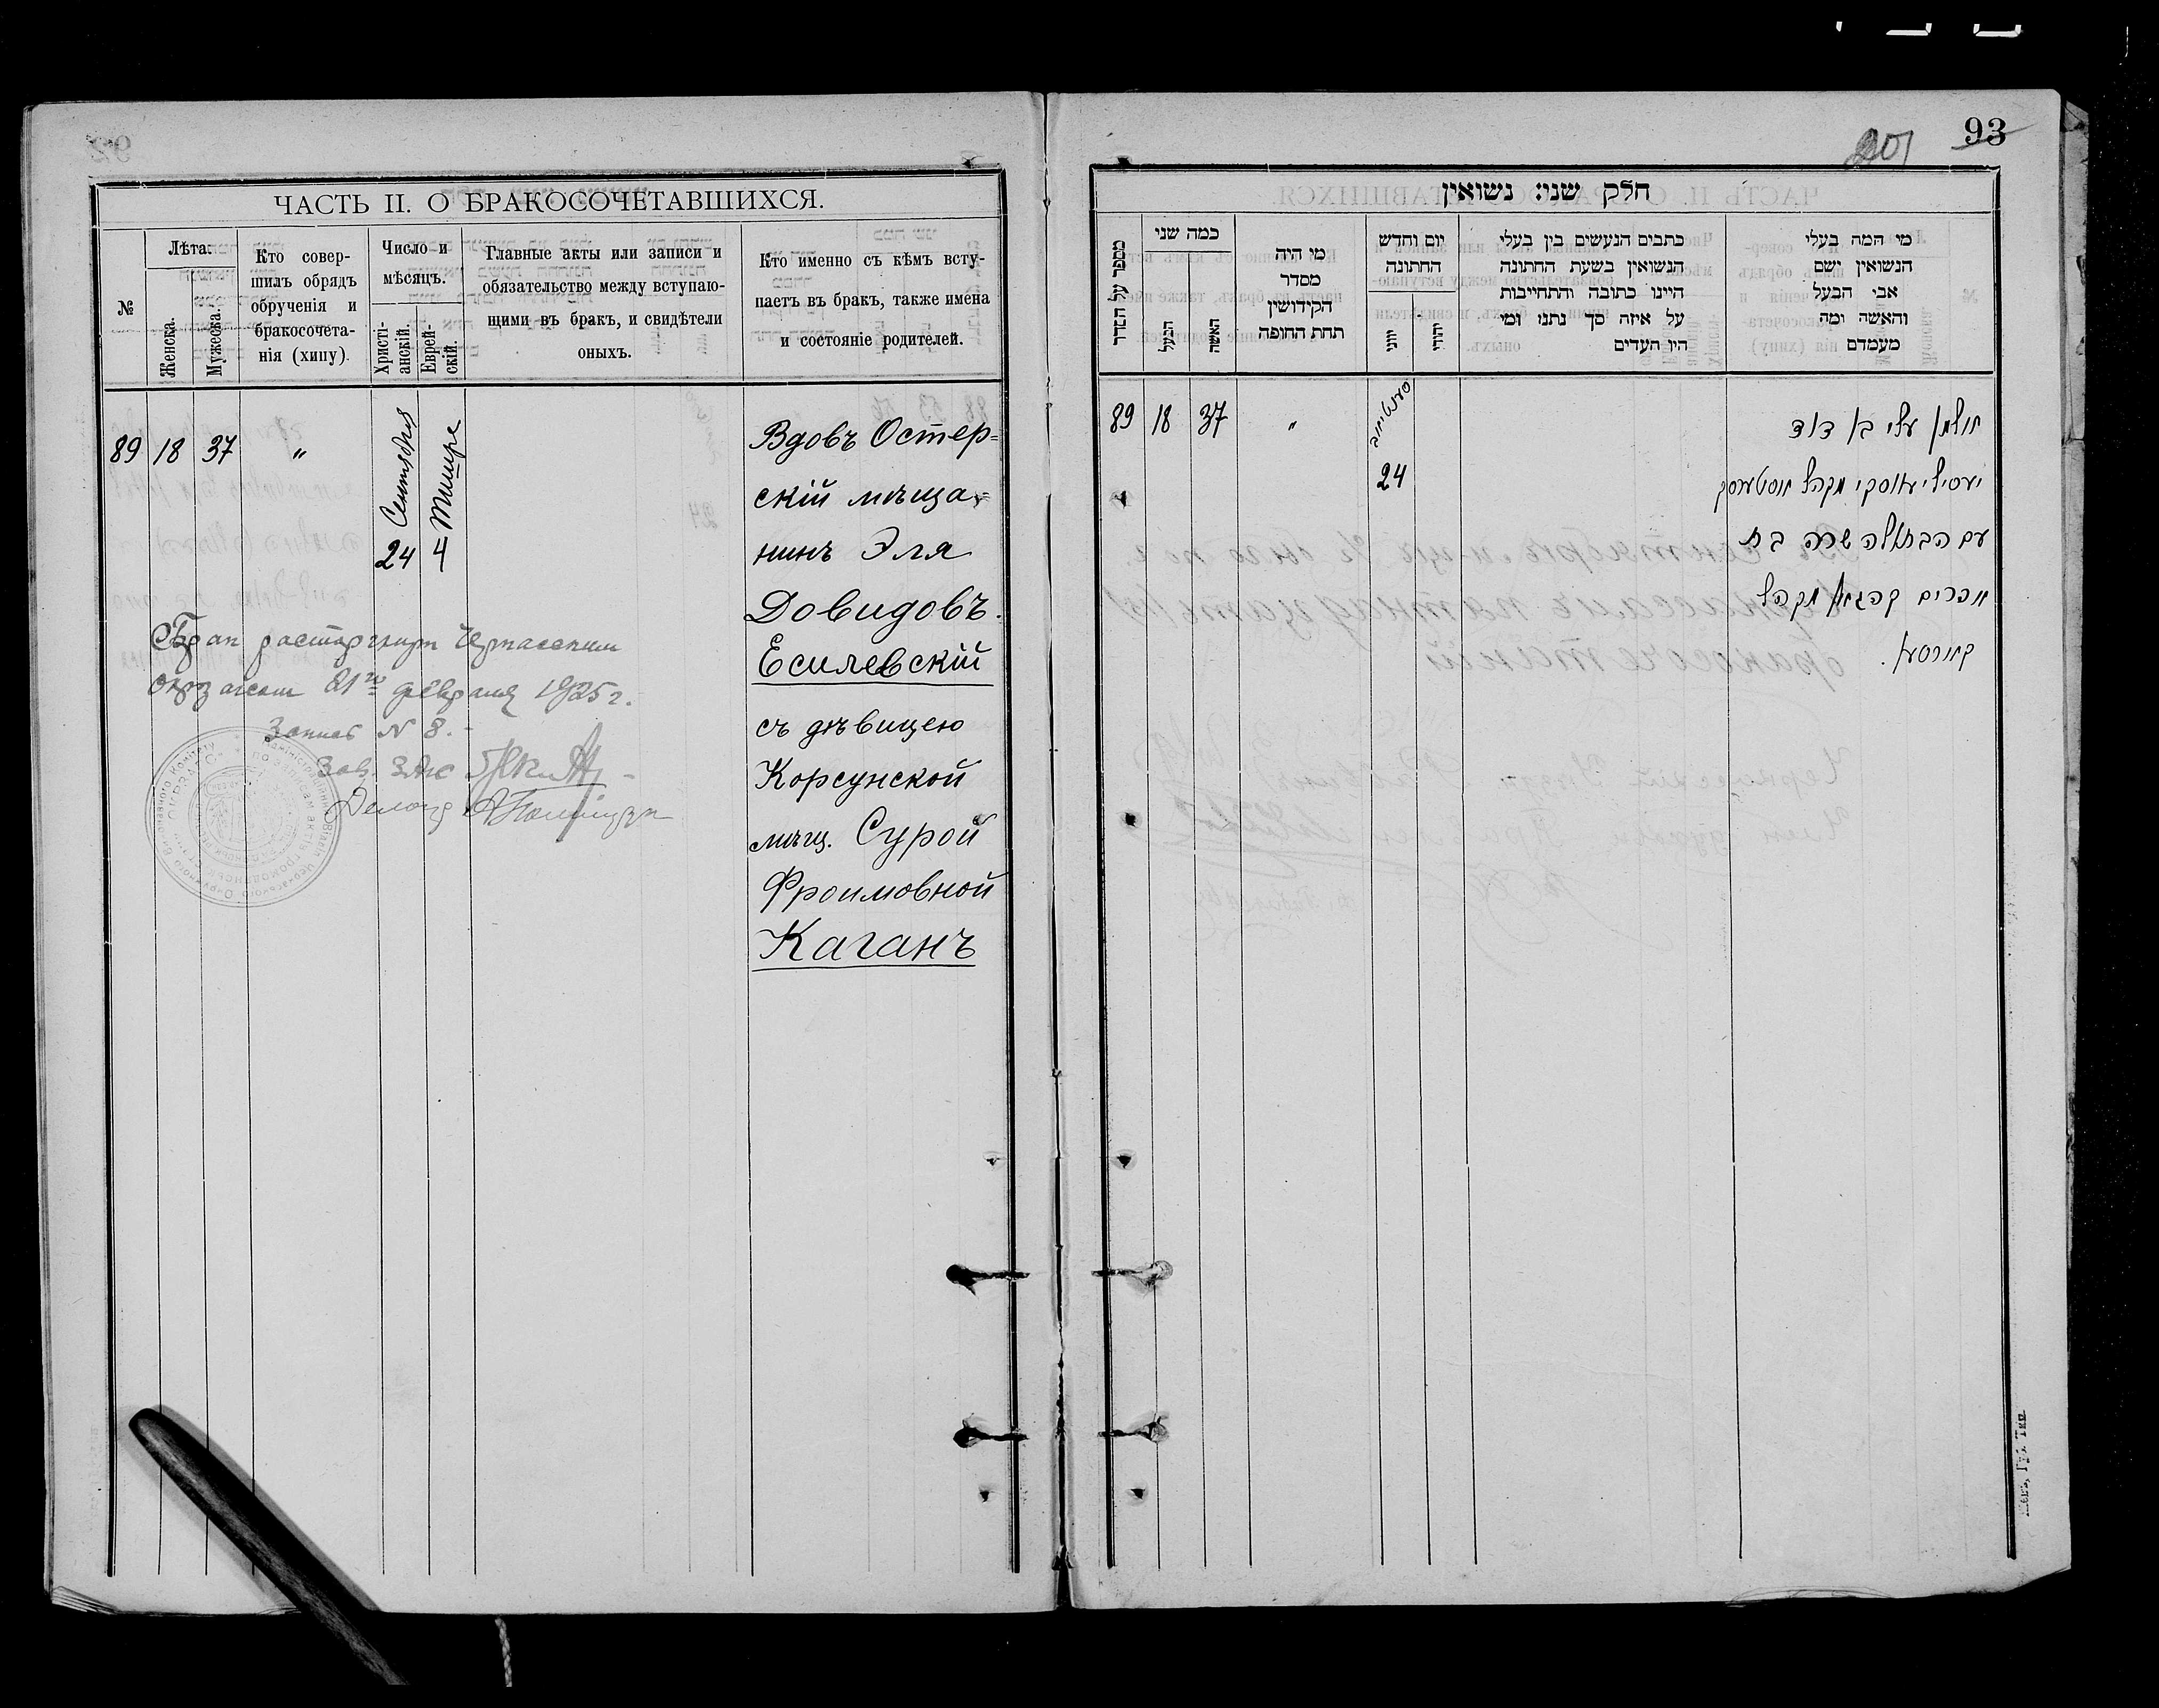 ЧАСТЬ II. О БРАКОСОЧЕТАВШИХСЯ.
№
Лѣта.
Женска.
Мужеска.
Кто совер-
шилъ обрядъ
обрученія и
бракосочета-
нія (хипу).
Число и
мѣсяцъ.
Христі-
анскій.
Еврей-
скій.
Главные акты или записи и
обязательство между вступаю-
щими въ бракъ, и свидѣтели
оныхъ.
Кто именно съ кѣмъ всту-
паетъ въ бракъ, также имена
и состояніе родителей.
89 18 37 "
Сентября
24
Тишре
4
Вдовъ Остер=
скій мѣща=
нинъ Эля
Довидовъ
Есилевскій
съ дѣвицею
Корсунской
мѣщ. Сурой
Фроимовной
Каганъ
Брак расторгнут Черкасским
21го февраля 1925 г.
Запись N 8.
Зав. ЗАГС
93
חלק שני: נשואין
מספר על הסדר
כמה שני
הבעל
האשה
מי היה
מסדר
הקידושין
תחת החופה
יום וחדש
החתונה
יוני
יהודי
כתבים הנעשים בין בעלי
הנשואין בשעת החתונה
היינו כתובה והתחייבות
על איזה סך נתנו ומי
היו העדים
מי המה בעלי
הנשואין ושם
אבי הבעל
והאשה ומה
מעמדם
89 18 37 "
24
אלמן עלי בן דוד
מקהל אוסטערסק
עם הבתולה שרה בת
אפרים קהגאן מקהל
קארסון.